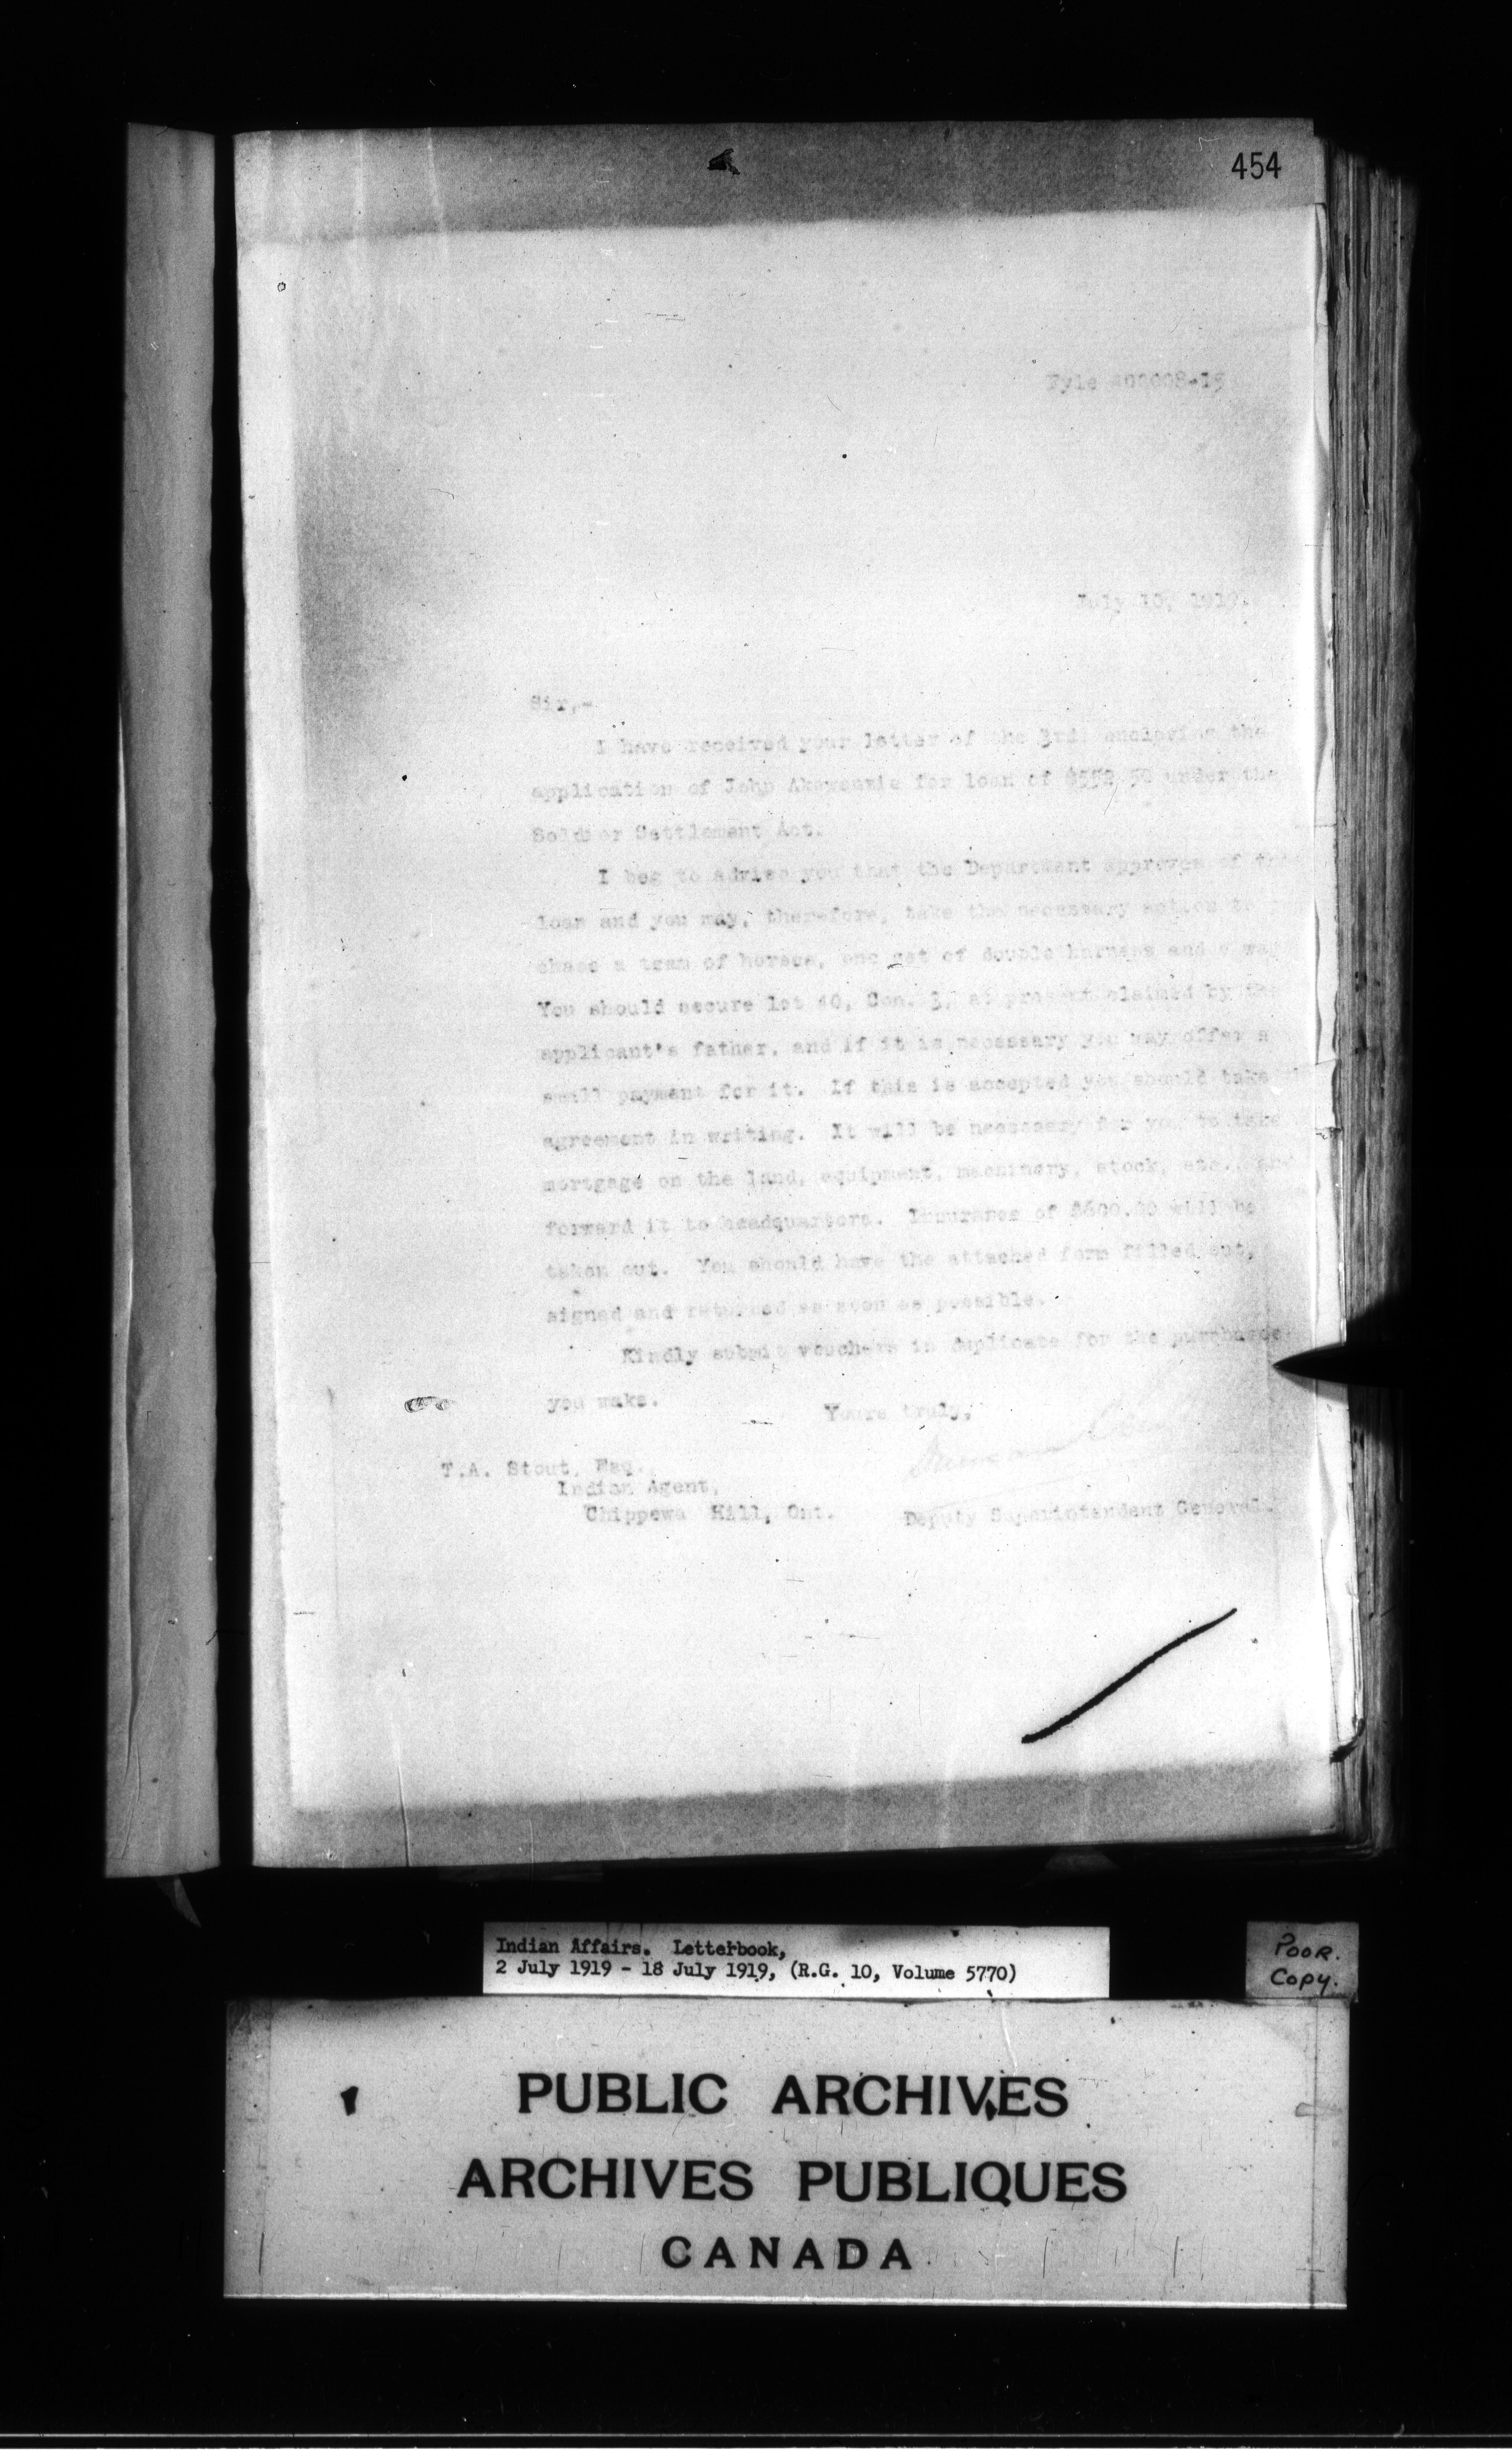 454
Fyle
July 10, 1919.
Sir,-
I have received your letter of the 3rd enclosing the
application of John for loan of under the
Soldier Settlement Act.
I beg to advise you that the Department approves of this
loan and you may, therefore, take the necessary action to
chase a team of horses, one set of double harness and a
You should secure lot 40, Con. 3, at present claimed by the
applicant's father, and if it is necessary you may offer a
small payment for it. If this is accepted you should take
agreement in writing. It will be necessary for you to take
mortgage on the land, equipment, machinery, stock, etc., and
forward it to headquarters. Insurance of $600.00 will be
taken out. You should have the attached form filled out,
signed and returned as soon as possible.
Kindly submit vouchers in duplicate for the purchases
you make.
Yours truly,
T.A. Stout, Esq.
Indian Agent,
Chippewa Hill, Ont.
Deputy Superintendent General.
Indian Affairs. Letterbook,
2 July 1919 - 18 July 1919, (R.G. 10, Volume 5770)
POOR.
COPY.
PUBLIC ARCHIVES
ARCHIVES PUBLIQUES
CANADA